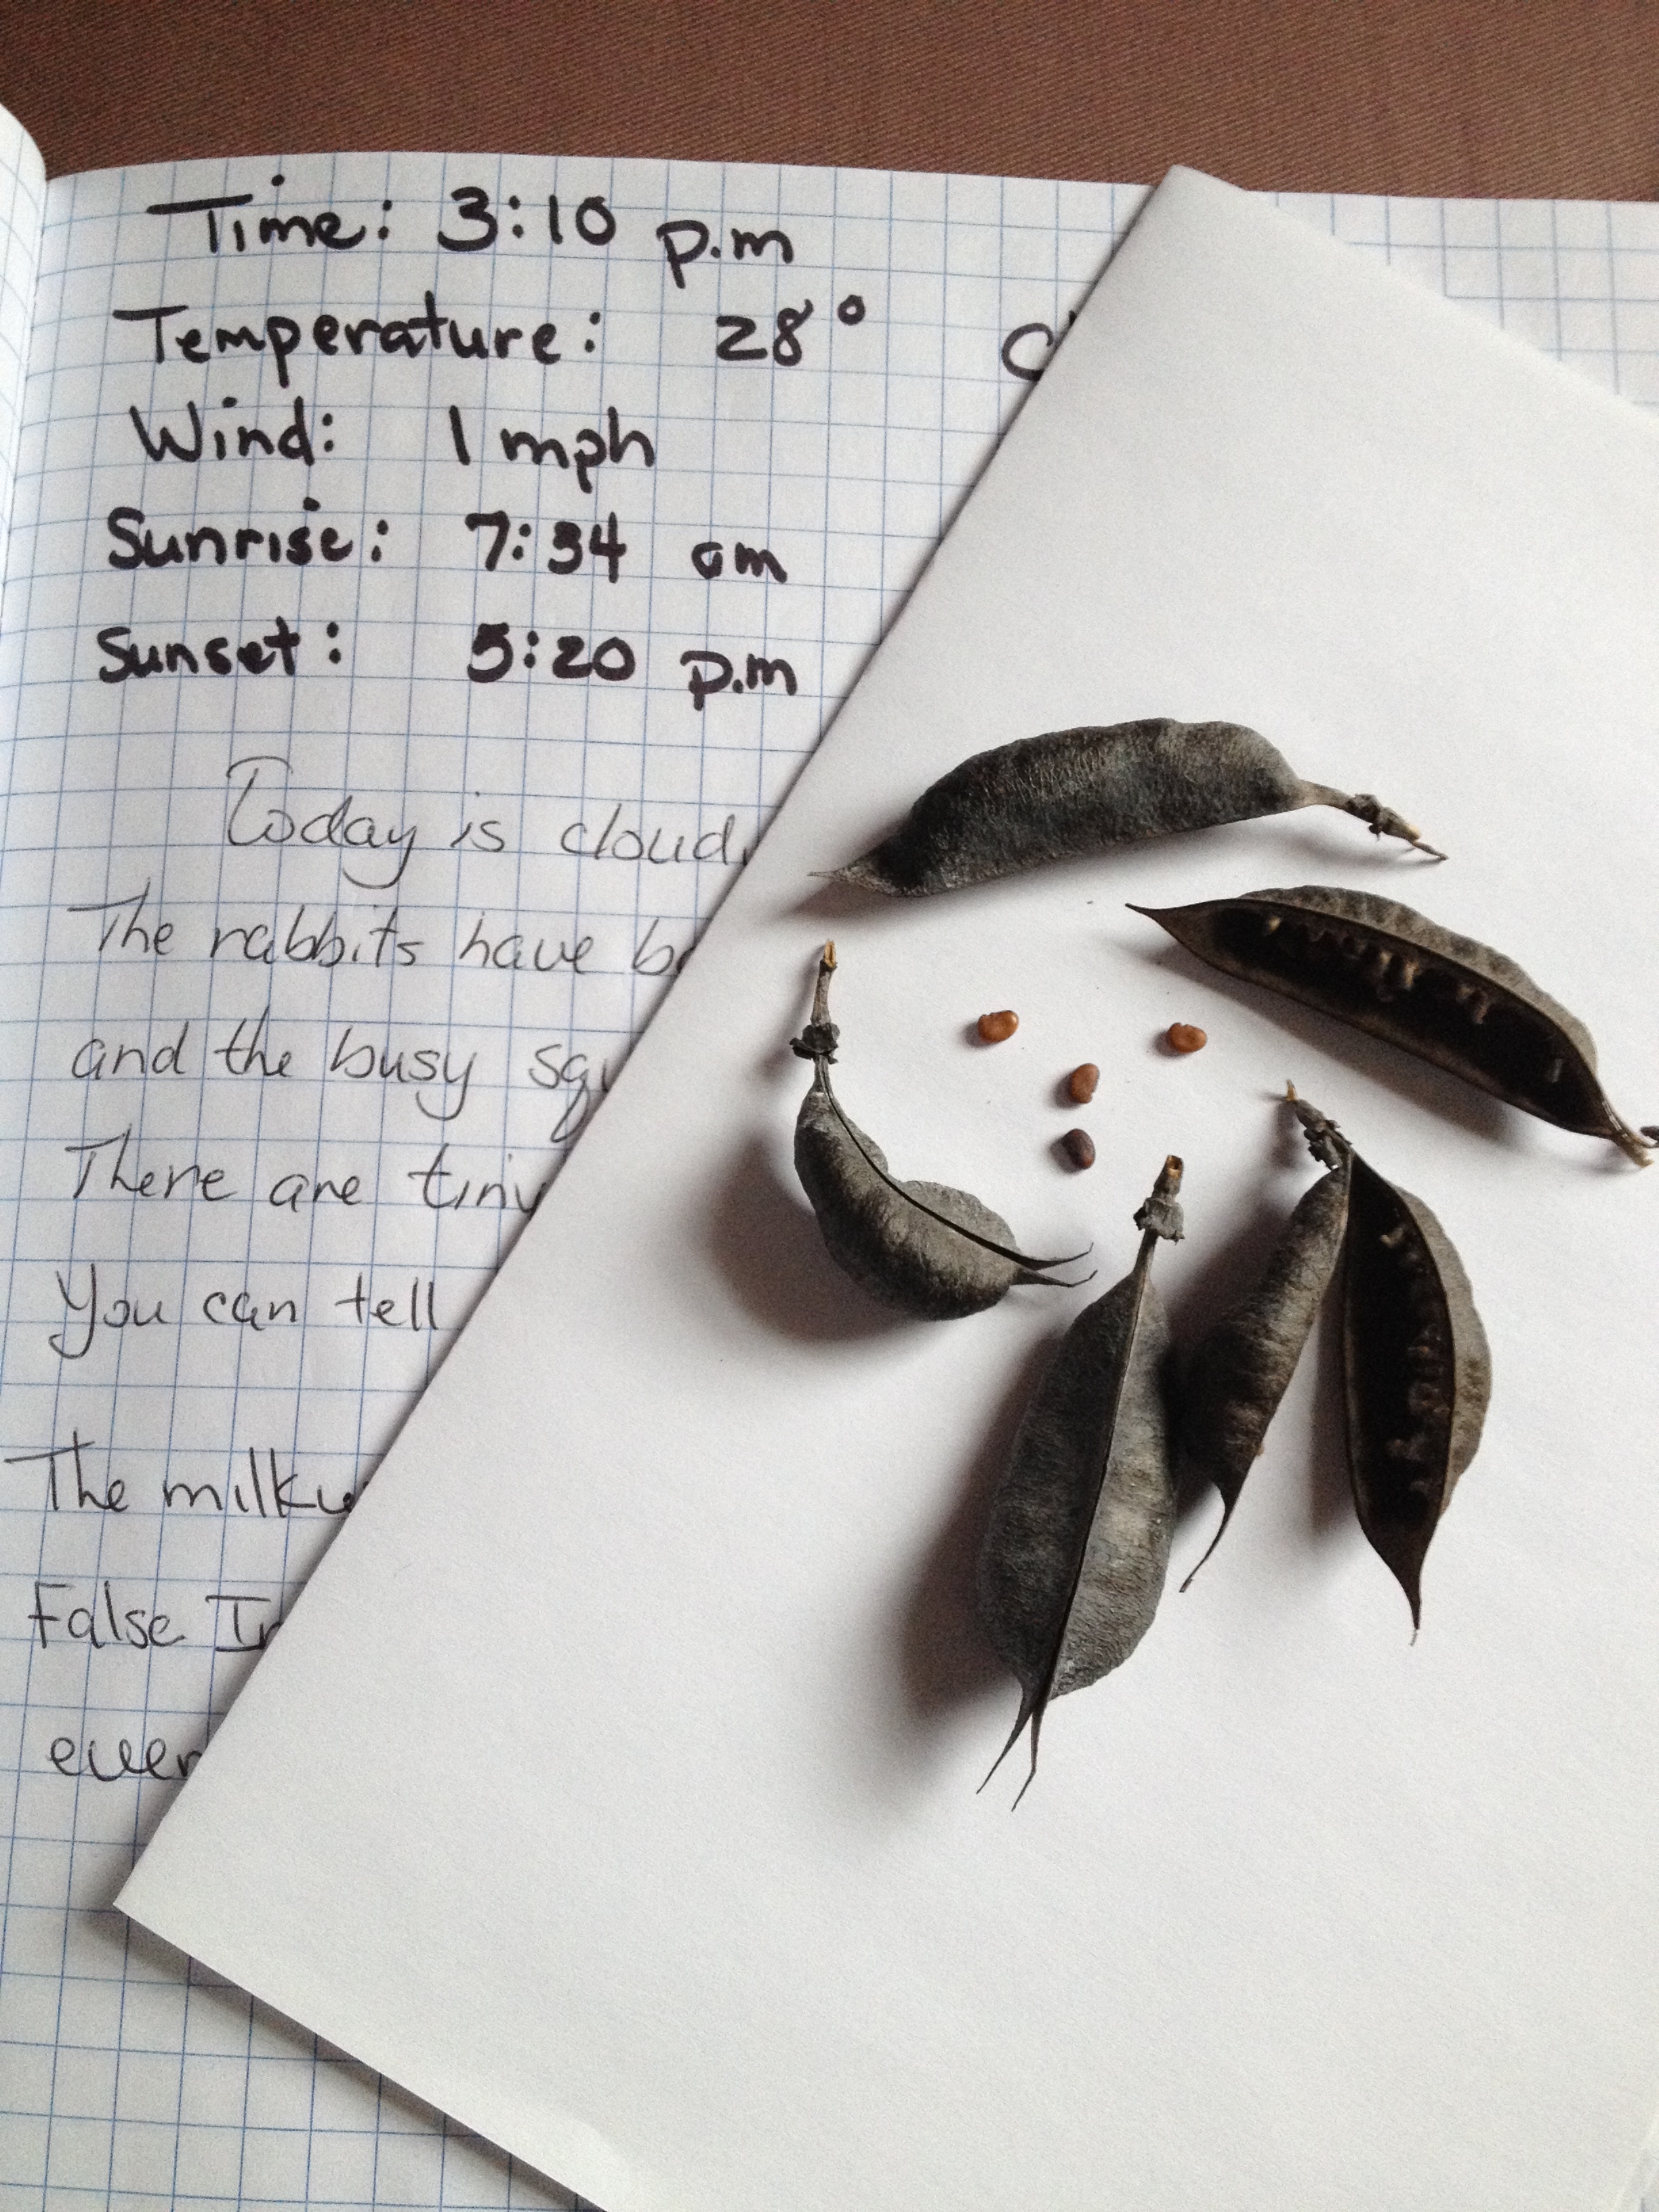 Time: 3:10 p.m
Temperature: 28°
Wind: 1 mph
Sunrise: 7:34 am
Sunset: 5:20 p.m
Today is cloud
The rabbits have
and the busy
There are tiny
You can tell
The
False